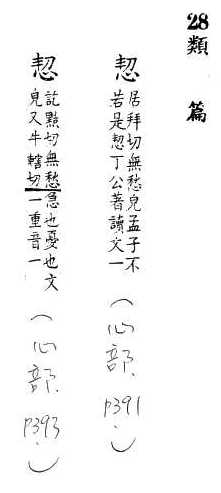 28類篇
恝 居拜切無愁皃孟子不
若是恝丁公著讀文一
(心部 P391.)
恝 訖黠切無愁急也憂也文
皃又牛轄切一重音一
(心部 P393.)